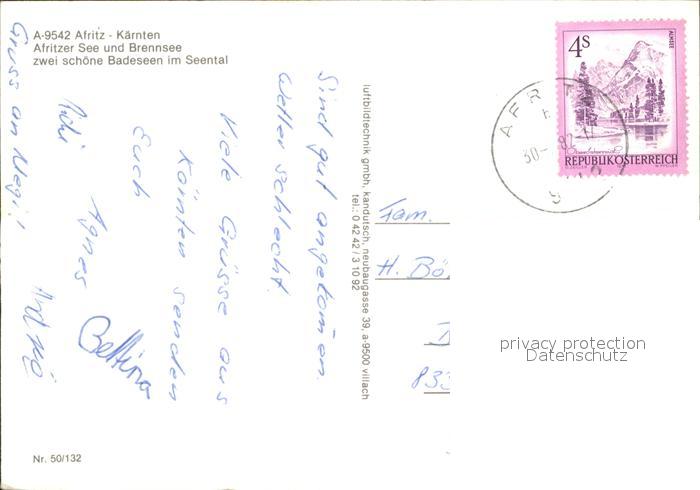 A-9542 Afritz - Kärnten
Afritzer See und Brennsee
zwei schöne Badeseen im Seental
Sind gut angekommen.
Wetter schlecht.
Viele Grüsse aus
Kärnten senden
Euch
Agnes
Bettina
Gruss an
luftbildtechnik gmbh, kandutsch, neubaugasse 39, a-9500 villach
tel.: 0 42 42 / 3 10 92
Fam.
H. Bö
833
4s
ALMSEE
REPUBLIK ÖSTERREICH
AFRITZ
30-
82-
9
privacy protection
Datenschutz
Nr. 50/132